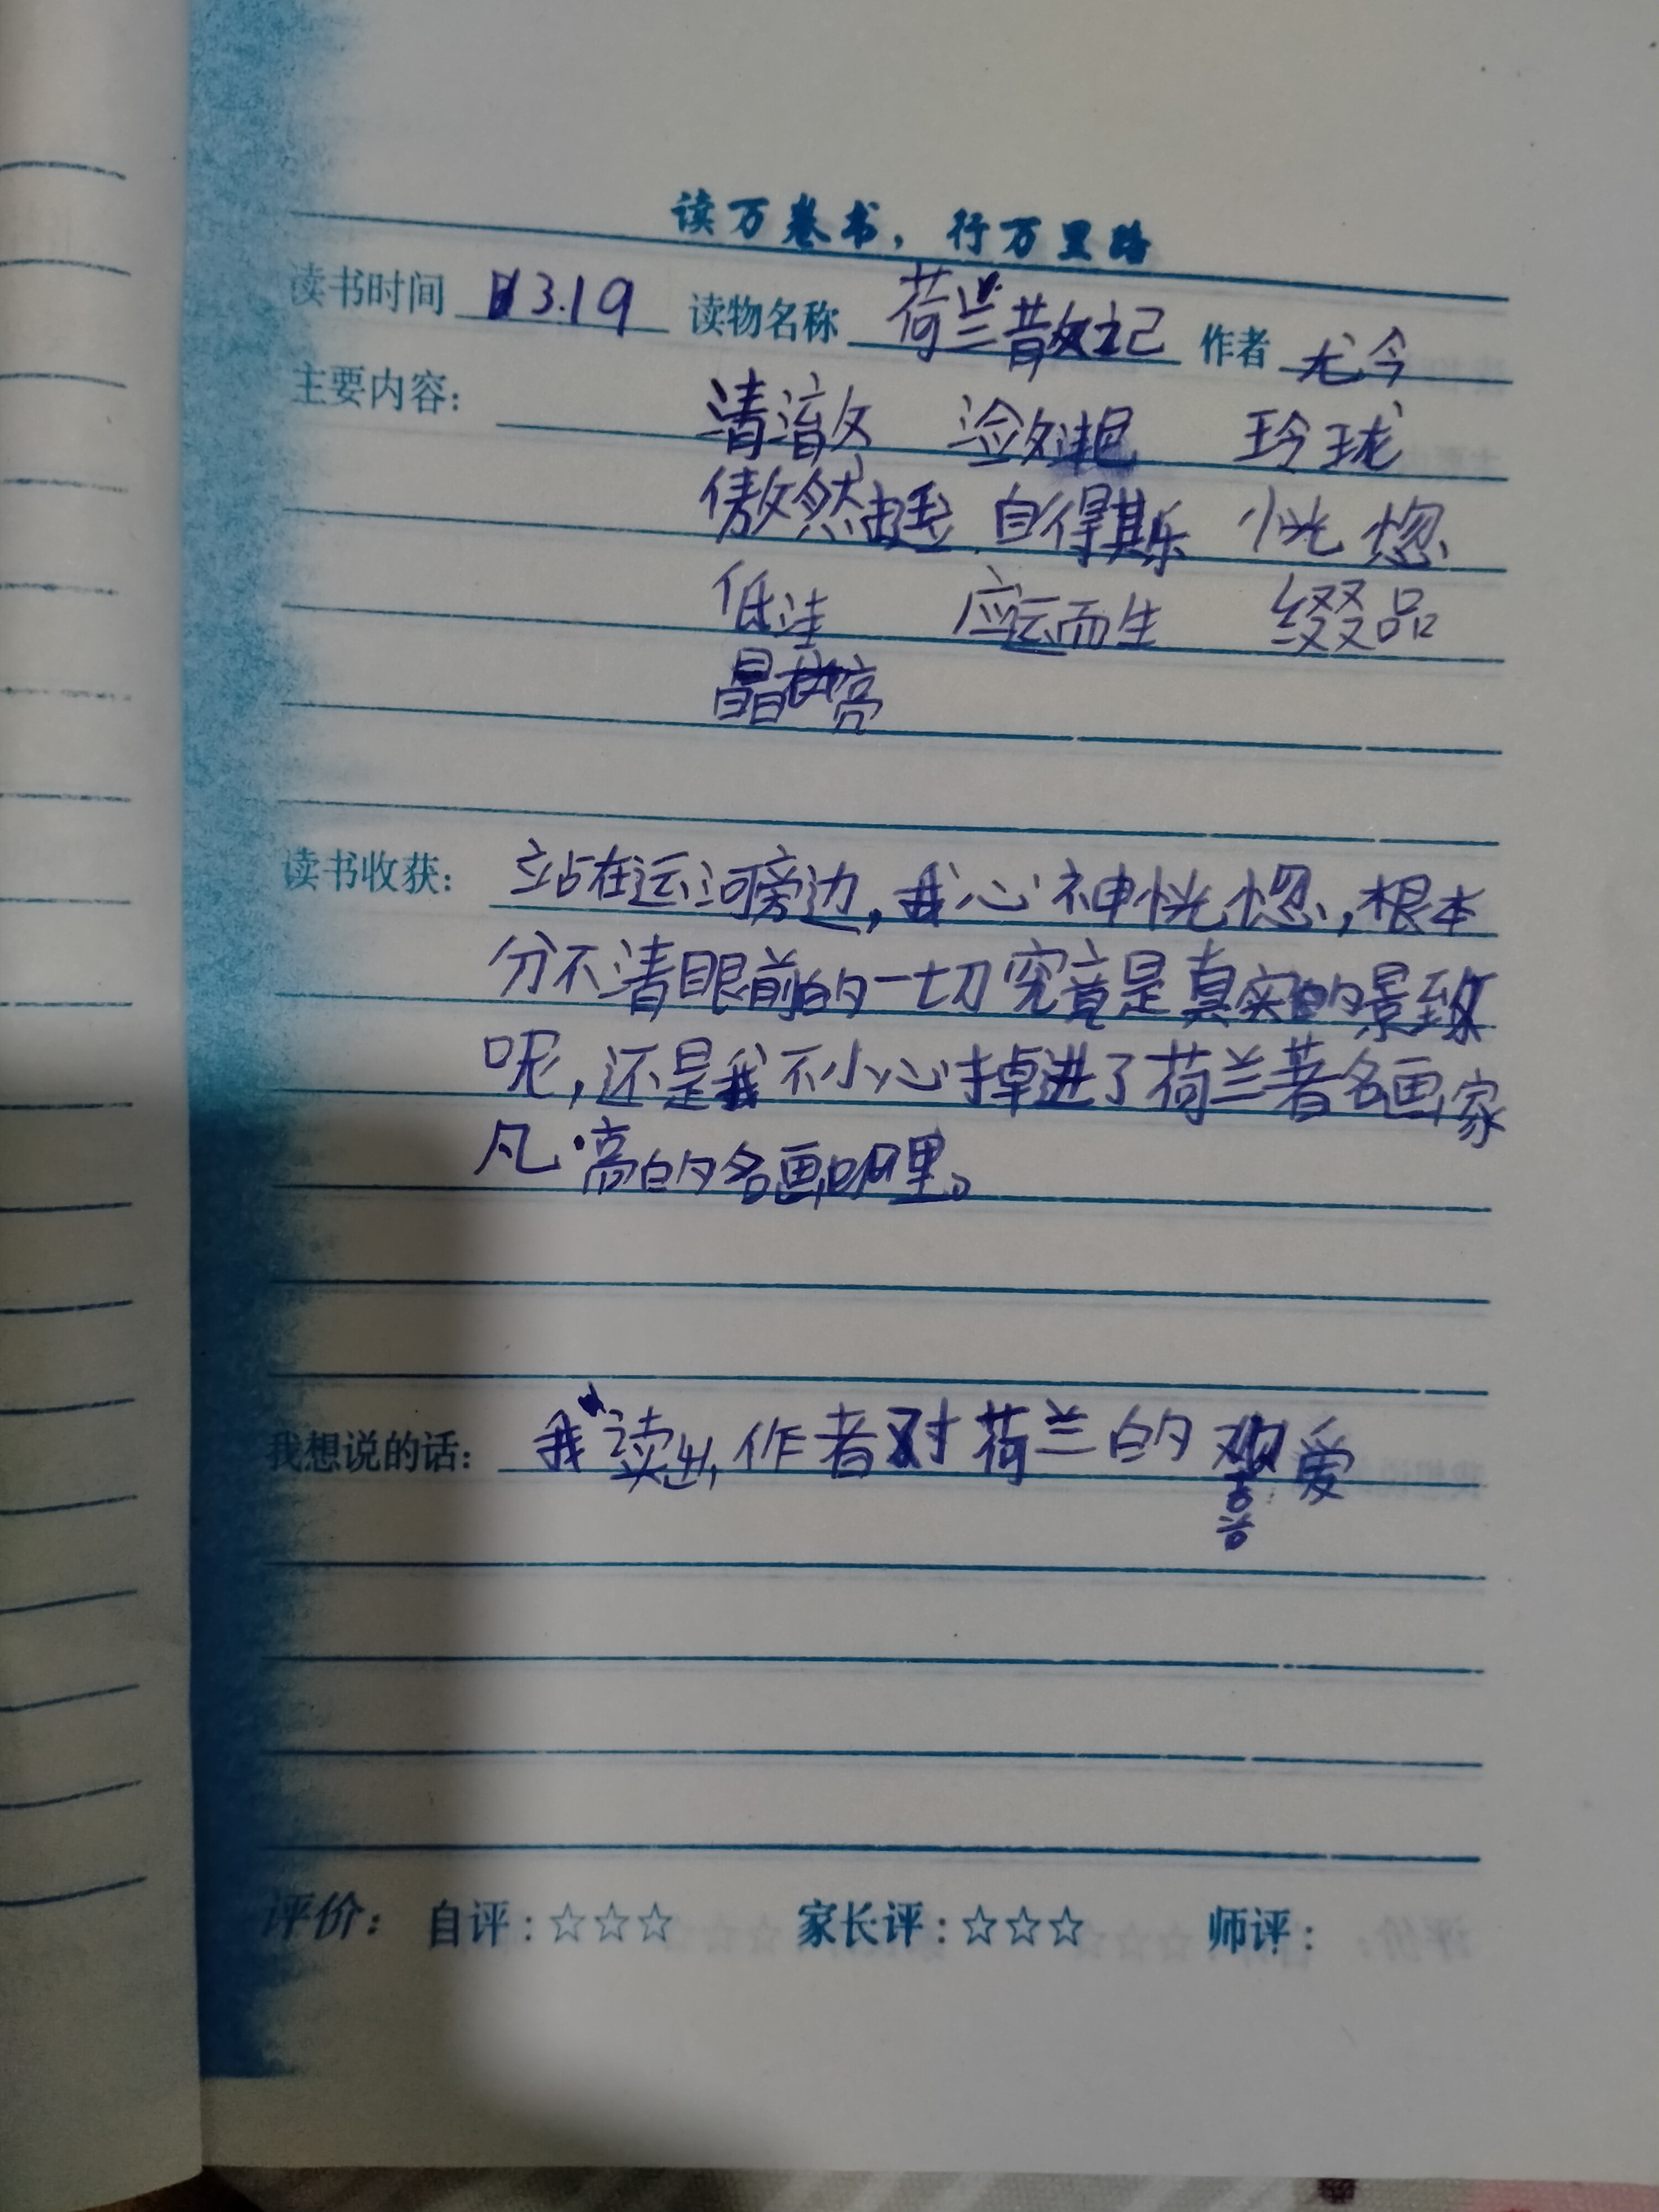 读万卷书，行万里路
读书时间 3.19 读物名称 荷兰散记 作者 尤今
主要内容： 清澈 潋滟 玲珑
傲然挺 自得其乐 恍惚
低洼 应运而生 缀品
晶亮
读书收获： 站在运河旁边，我心神恍惚，根本
分不清眼前的一切究竟是真实的景致
呢，还是我不小心掉进了荷兰著名画家
凡·高的名画里。
我想说的话： 我读出，作者对荷兰的喜爱
评价： 自评：☆☆☆ 家长评：☆☆☆ 师评：